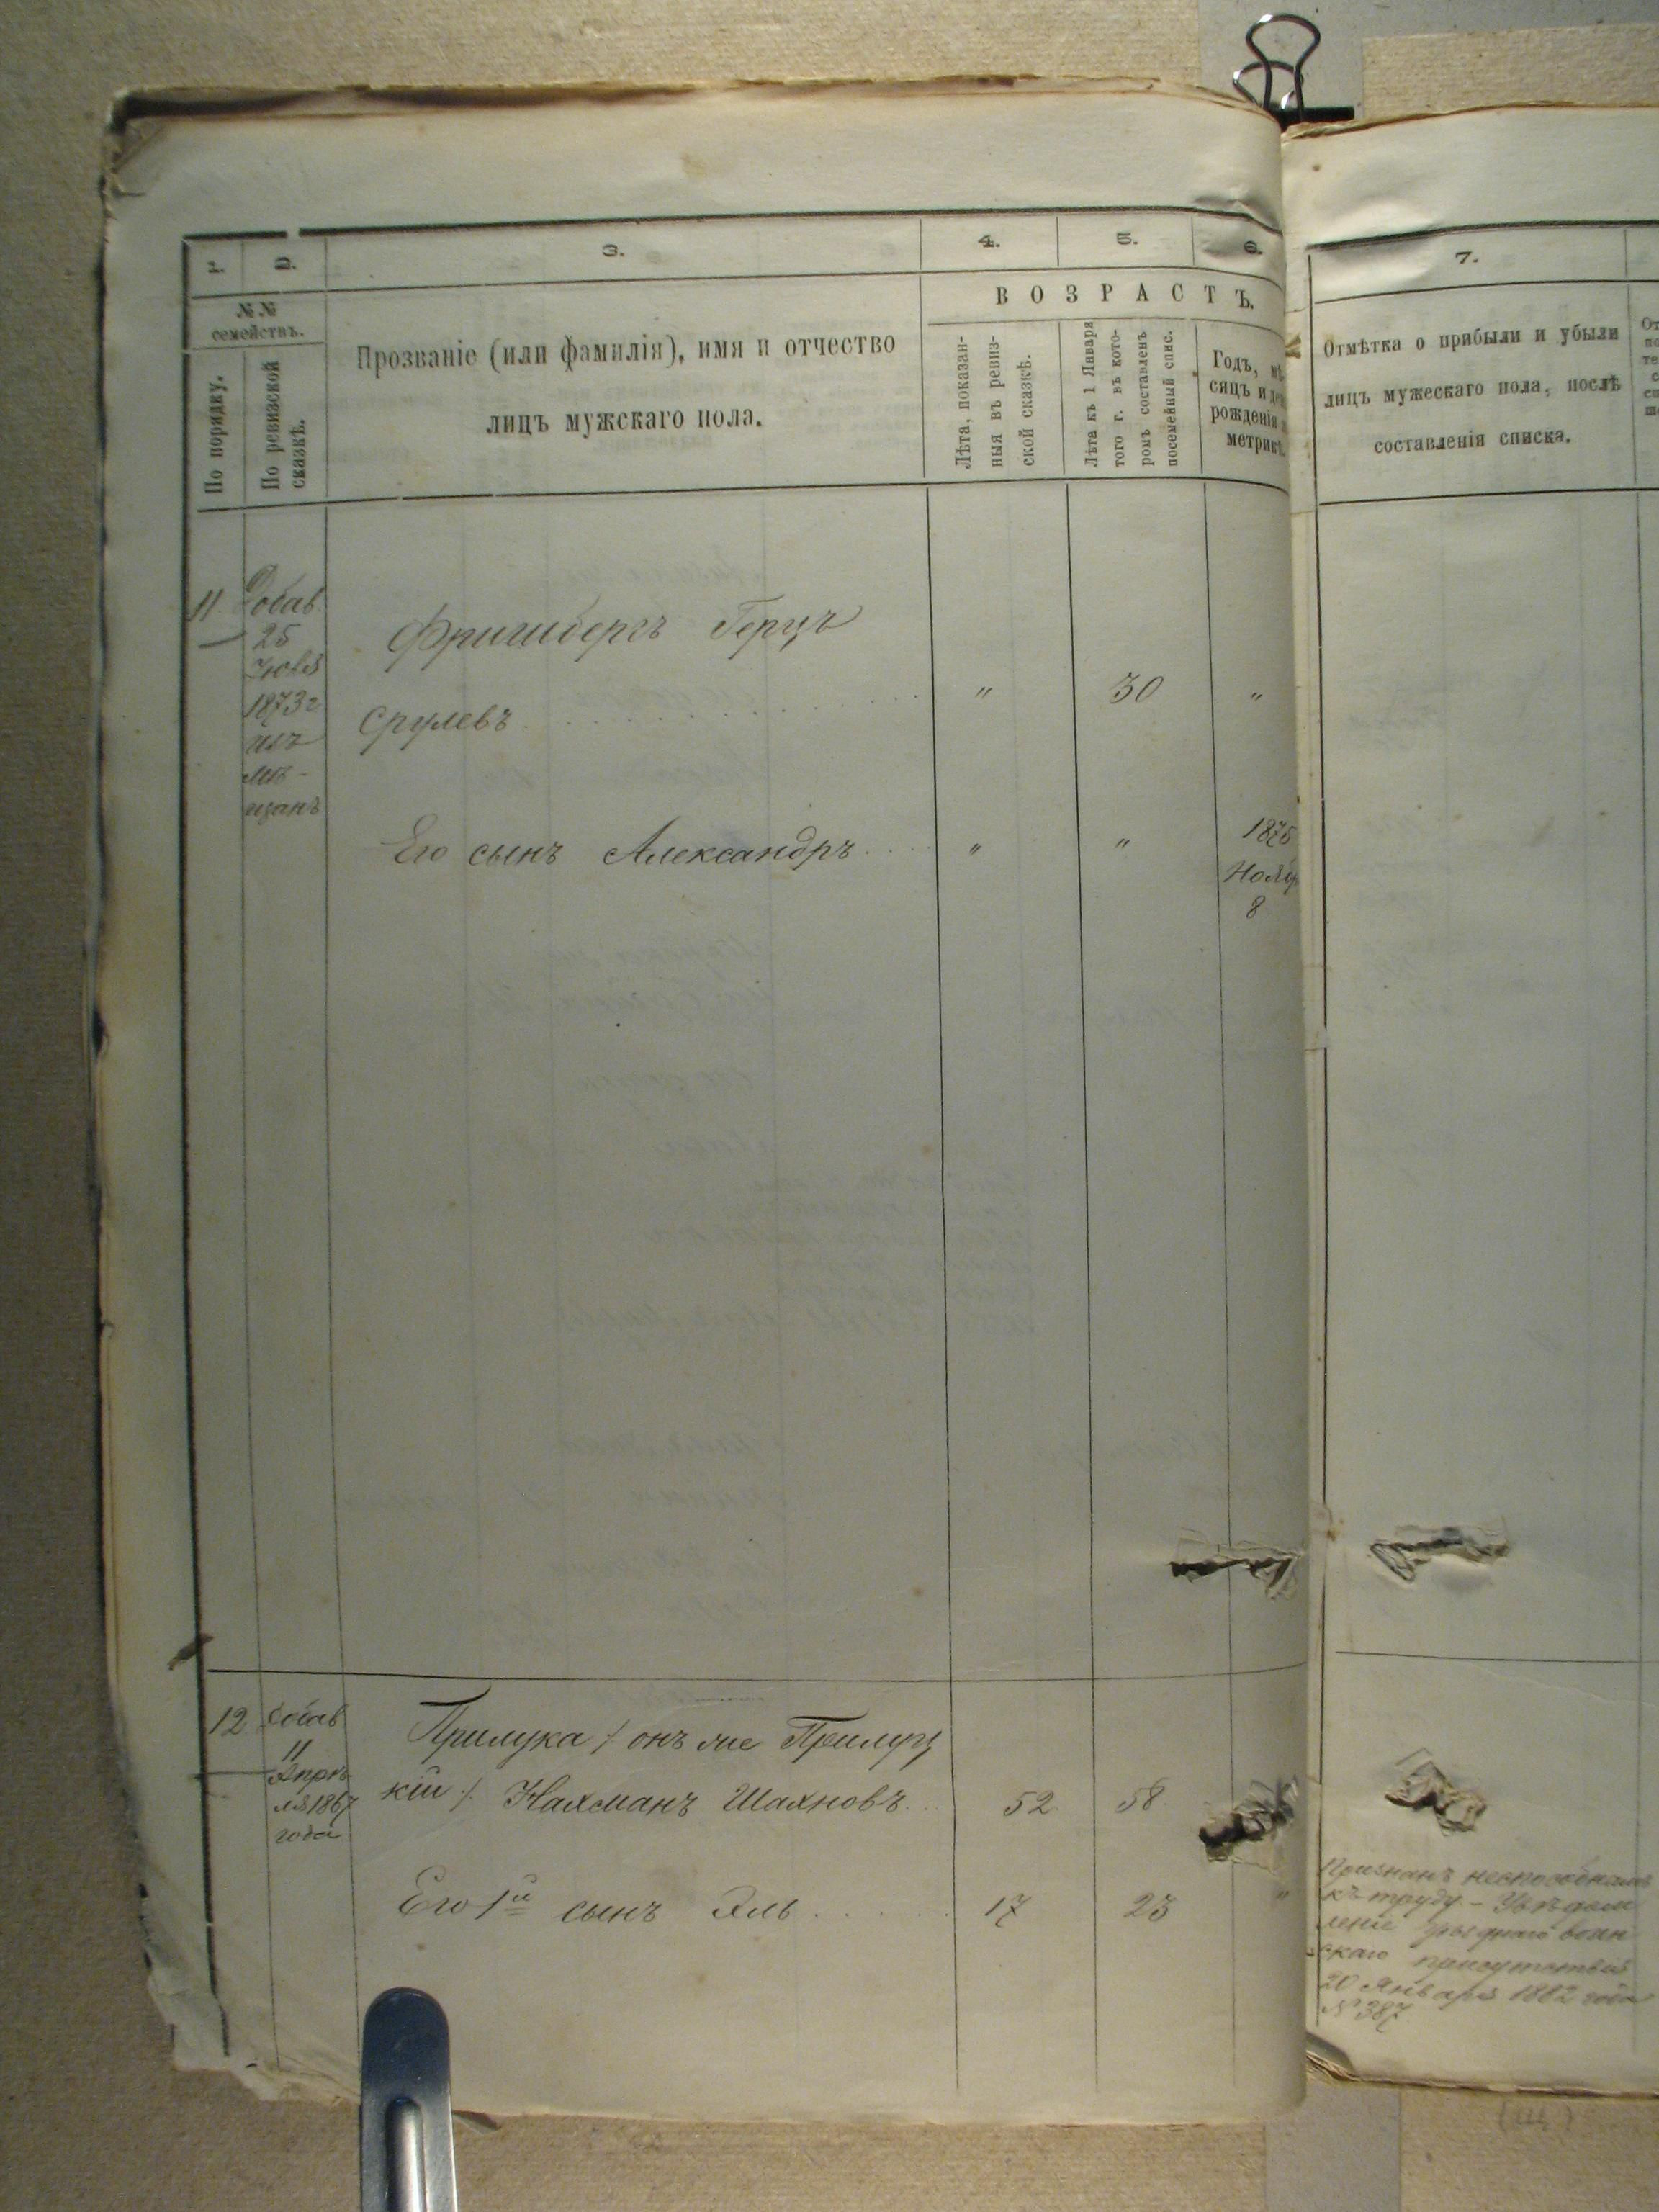 1.
2.
3.
4.
5.
6.
7.
№№
семействъ.
По порядку.
По ревизской
сказкѣ.
Прозваніе (или фамилія), имя и отчество
лицъ мужскаго пола.
ВОЗРАСТЪ.
Лѣта, показан-
ныя въ ревиз-
ской сказкѣ.
Лѣта къ 1 Января
того г. въ кото-
ромъ составленъ
посемейный спис.
Годъ, мѣ-
сяцъ и
рожденія
метрик
Отмѣтка о прибыли и убыли
лицъ мужескаго пола, послѣ
составленія списка.
11 Добав.
25
1873 г
изъ
мѣ-
щанъ
Герцъ
Срулевъ
" 30 "
Его сынъ Александръ " "
1875
Нояб
8
12 Добав
11
Апрѣ-
ля 1867
года
Прилука /: онъ же Прилуц
кій :/ Нахманъ Шахновъ 52 58
Его 1й сынъ Эль 17 23 "
Признанъ неспособнымъ
къ труду – Увѣдом
леніе уѣзднаго воин
скаго присутствія
20 Января 1882 года
№ 387